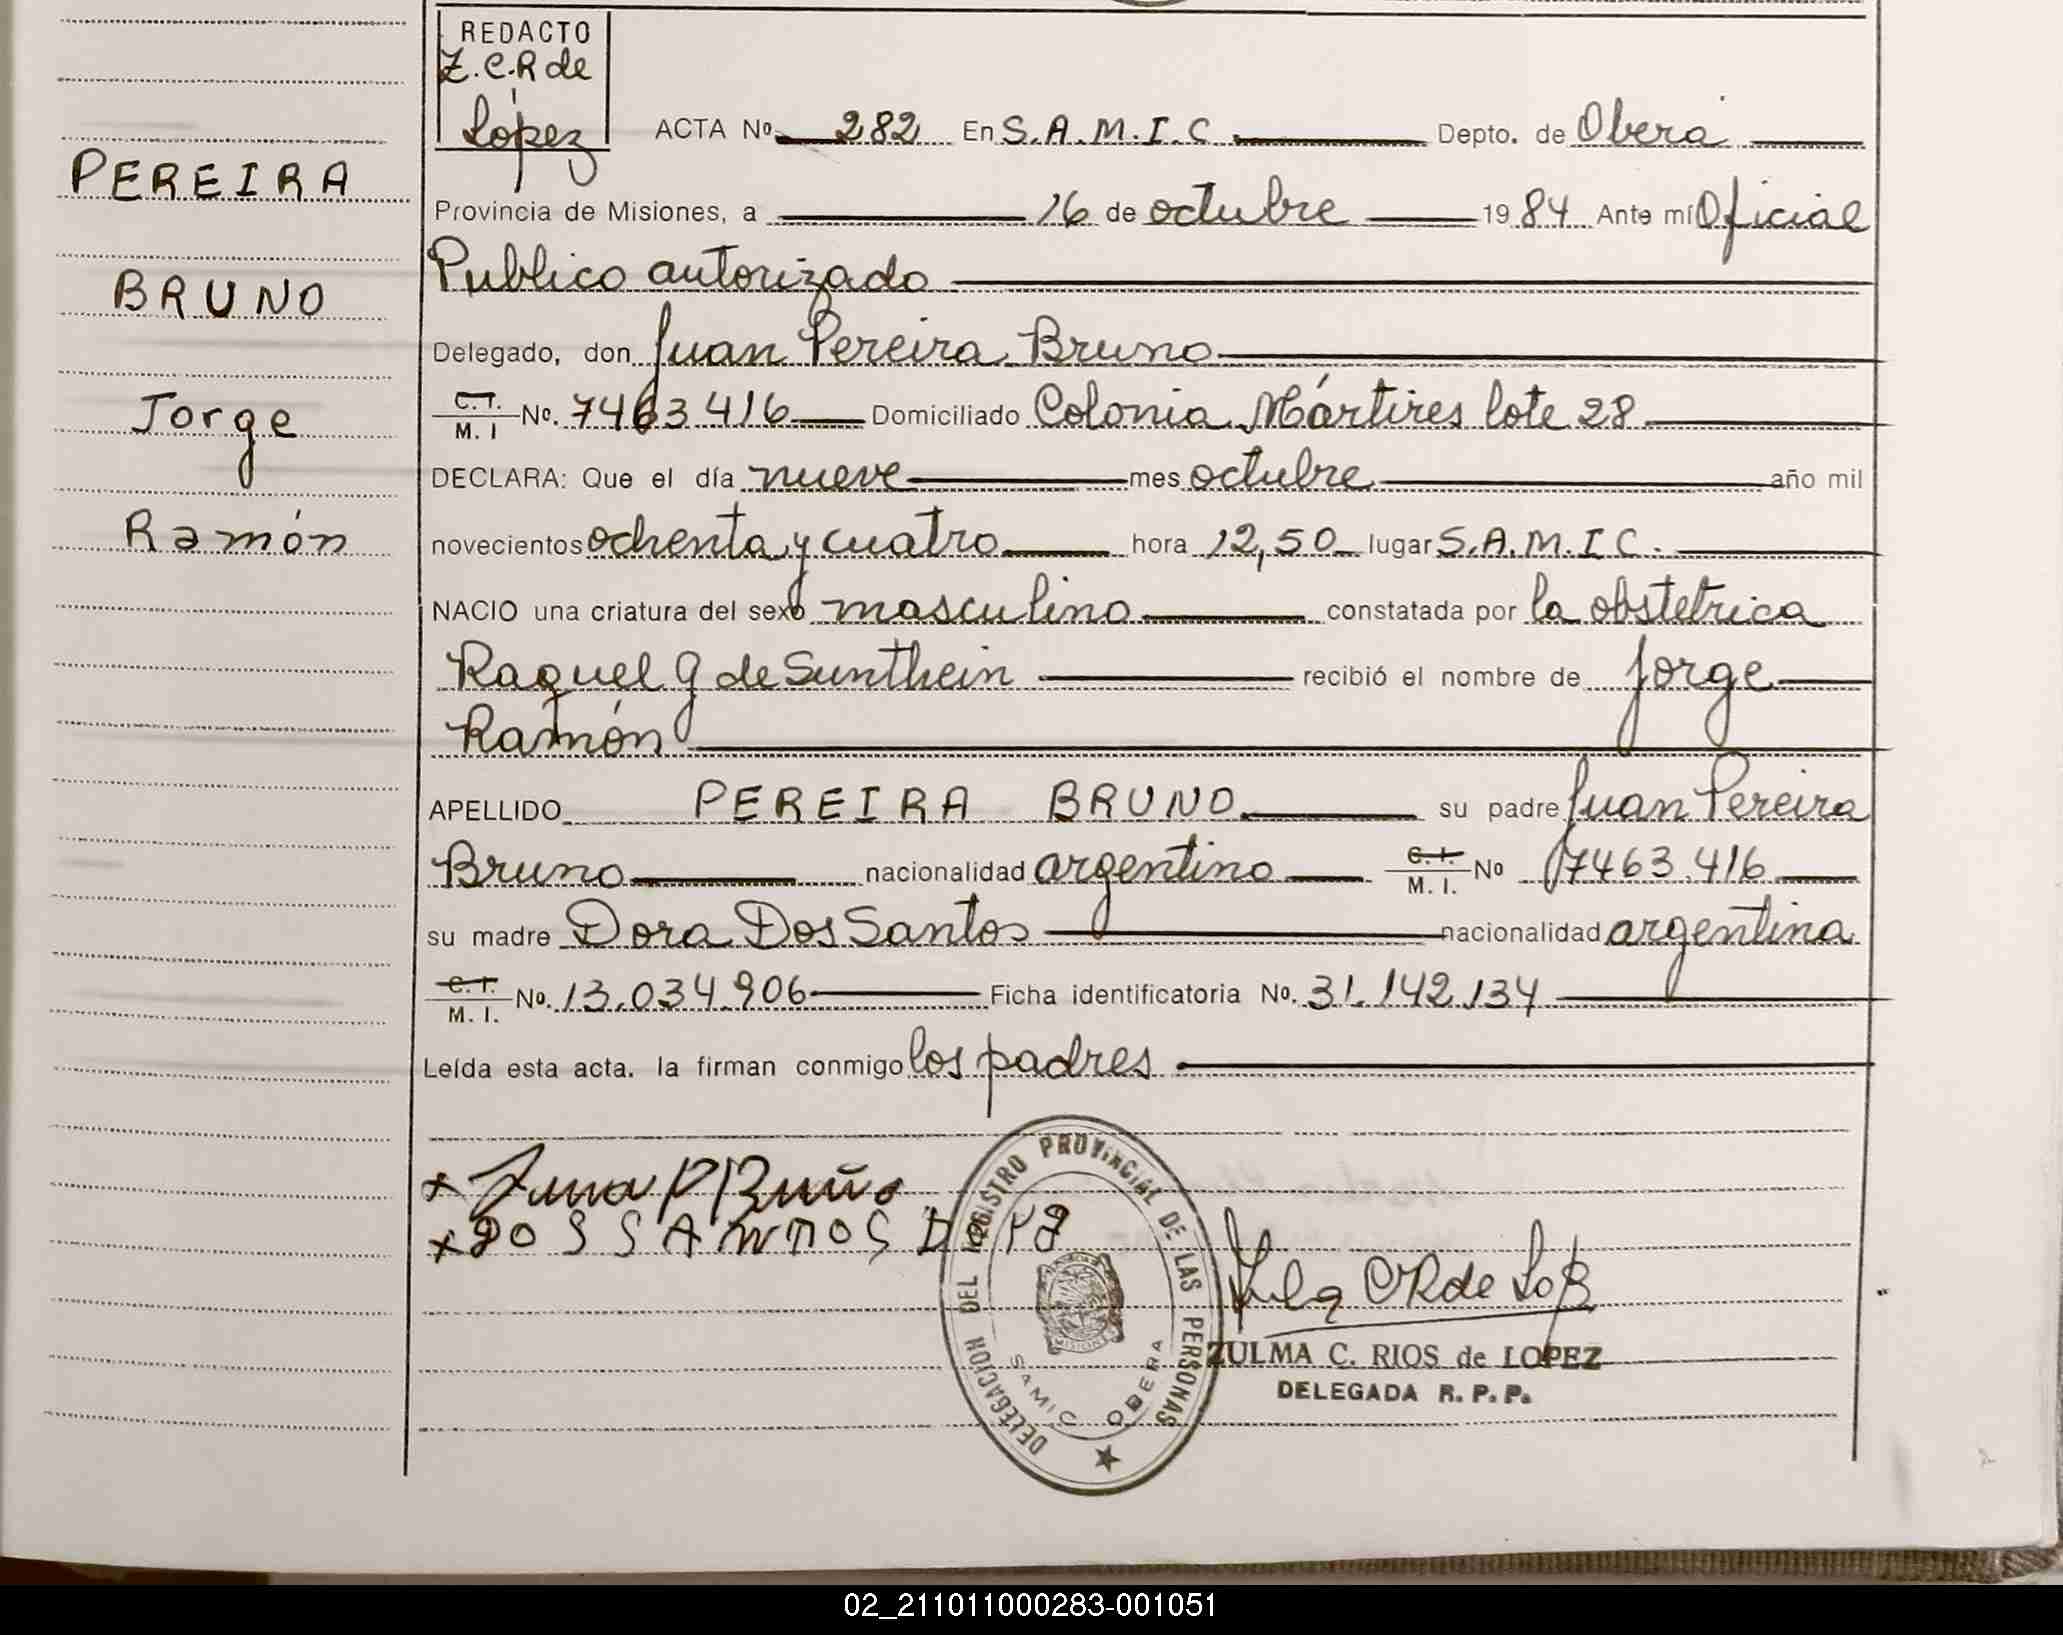 REDACTO
Z. C. R de
López
ACTA No 282 En S.A.M.I.C Depto. de Oberá
PEREIRA
Provincia de Misiones, a 16 de octubre 1984 Ante mí Oficial
Publico autorizado
BRUNO
Delegado, don Juan Pereira Bruno
C.I. M. I No. 7463416 Domiciliado Colonia Mártires lote 28
Jorge
DECLARA: Que el día nueve mes octubre año mil
Ramón
novecientos ochenta y cuatro hora 12,50 lugar S.A.M.I C.
NACIO una criatura del sexo masculino constatada por la obstetrica
Raquel G de Sunthein recibió el nombre de Jorge
Ramón
APELLIDO PEREIRA BRUNO su padre Juan Pereira
Bruno nacionalidad argentino C.I. M. I. No 7463.416
su madre Dora Dos Santos nacionalidad argentina
C.I. M. I. No. 13.034.906 Ficha identificatoria No. 31.142.134
Leída esta acta. la firman conmigo los padres
DELEGACION DEL REGISTRO PROVINCIAL DE LAS PERSONAS
SAMIC OBERA
MISIONES
ZULMA C. RIOS de LOPEZ
DELEGADA R. P. P.
02_211011000283-001051